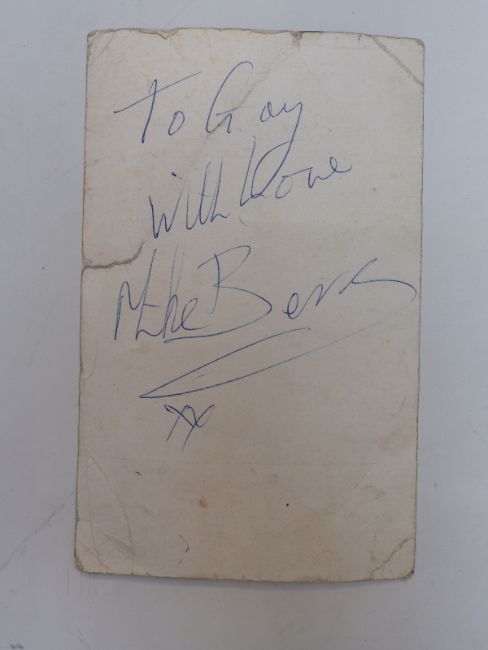 To Gay
with Love
Mike Berry
xx